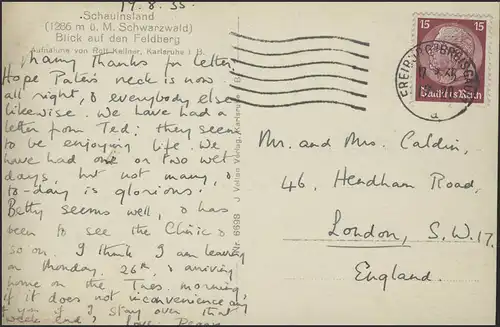 17.8.35
Schauinsland
(1286 m ü. M. Schwarzwald)
Blick auf den Feldberg
Aufnahme von Rolf Kellner, Karlsruhe i. B.
Many thanks for letter.
Hope Pater's neck is now
all right, & everybody else
likewise. We have had a
letter from Ted; they seem
to be enjoying life. We
have had one or two wet
days, but not many, &
to-day is glorious.
Betty seems well, & has
been to see the Clinic &
so on. I think I am leaving
on Monday, 26th, & arriving
home on the Tues. morning,
if it does not inconvenience any
of you if I stay over that
week end. Love. Peggy
Nr. 6698 J. Verlag, Karlsruhe
15
15
Deutsches Reich
FREIBURG (BREISGAU)
a
Mr. and Mrs. Caldin,
46, Hendham Road,
London, S.W.17.
England.